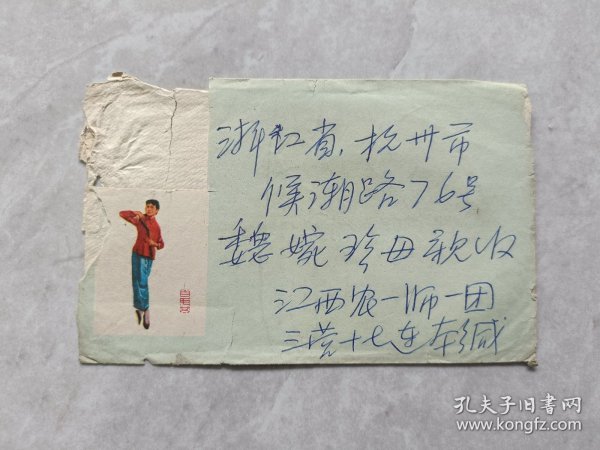 浙江省,杭州市
候潮路76号
魏婉珍母亲收
江西农一师一团
三营十七连本缄
白毛女
孔夫子旧书网
www.kongfz.com